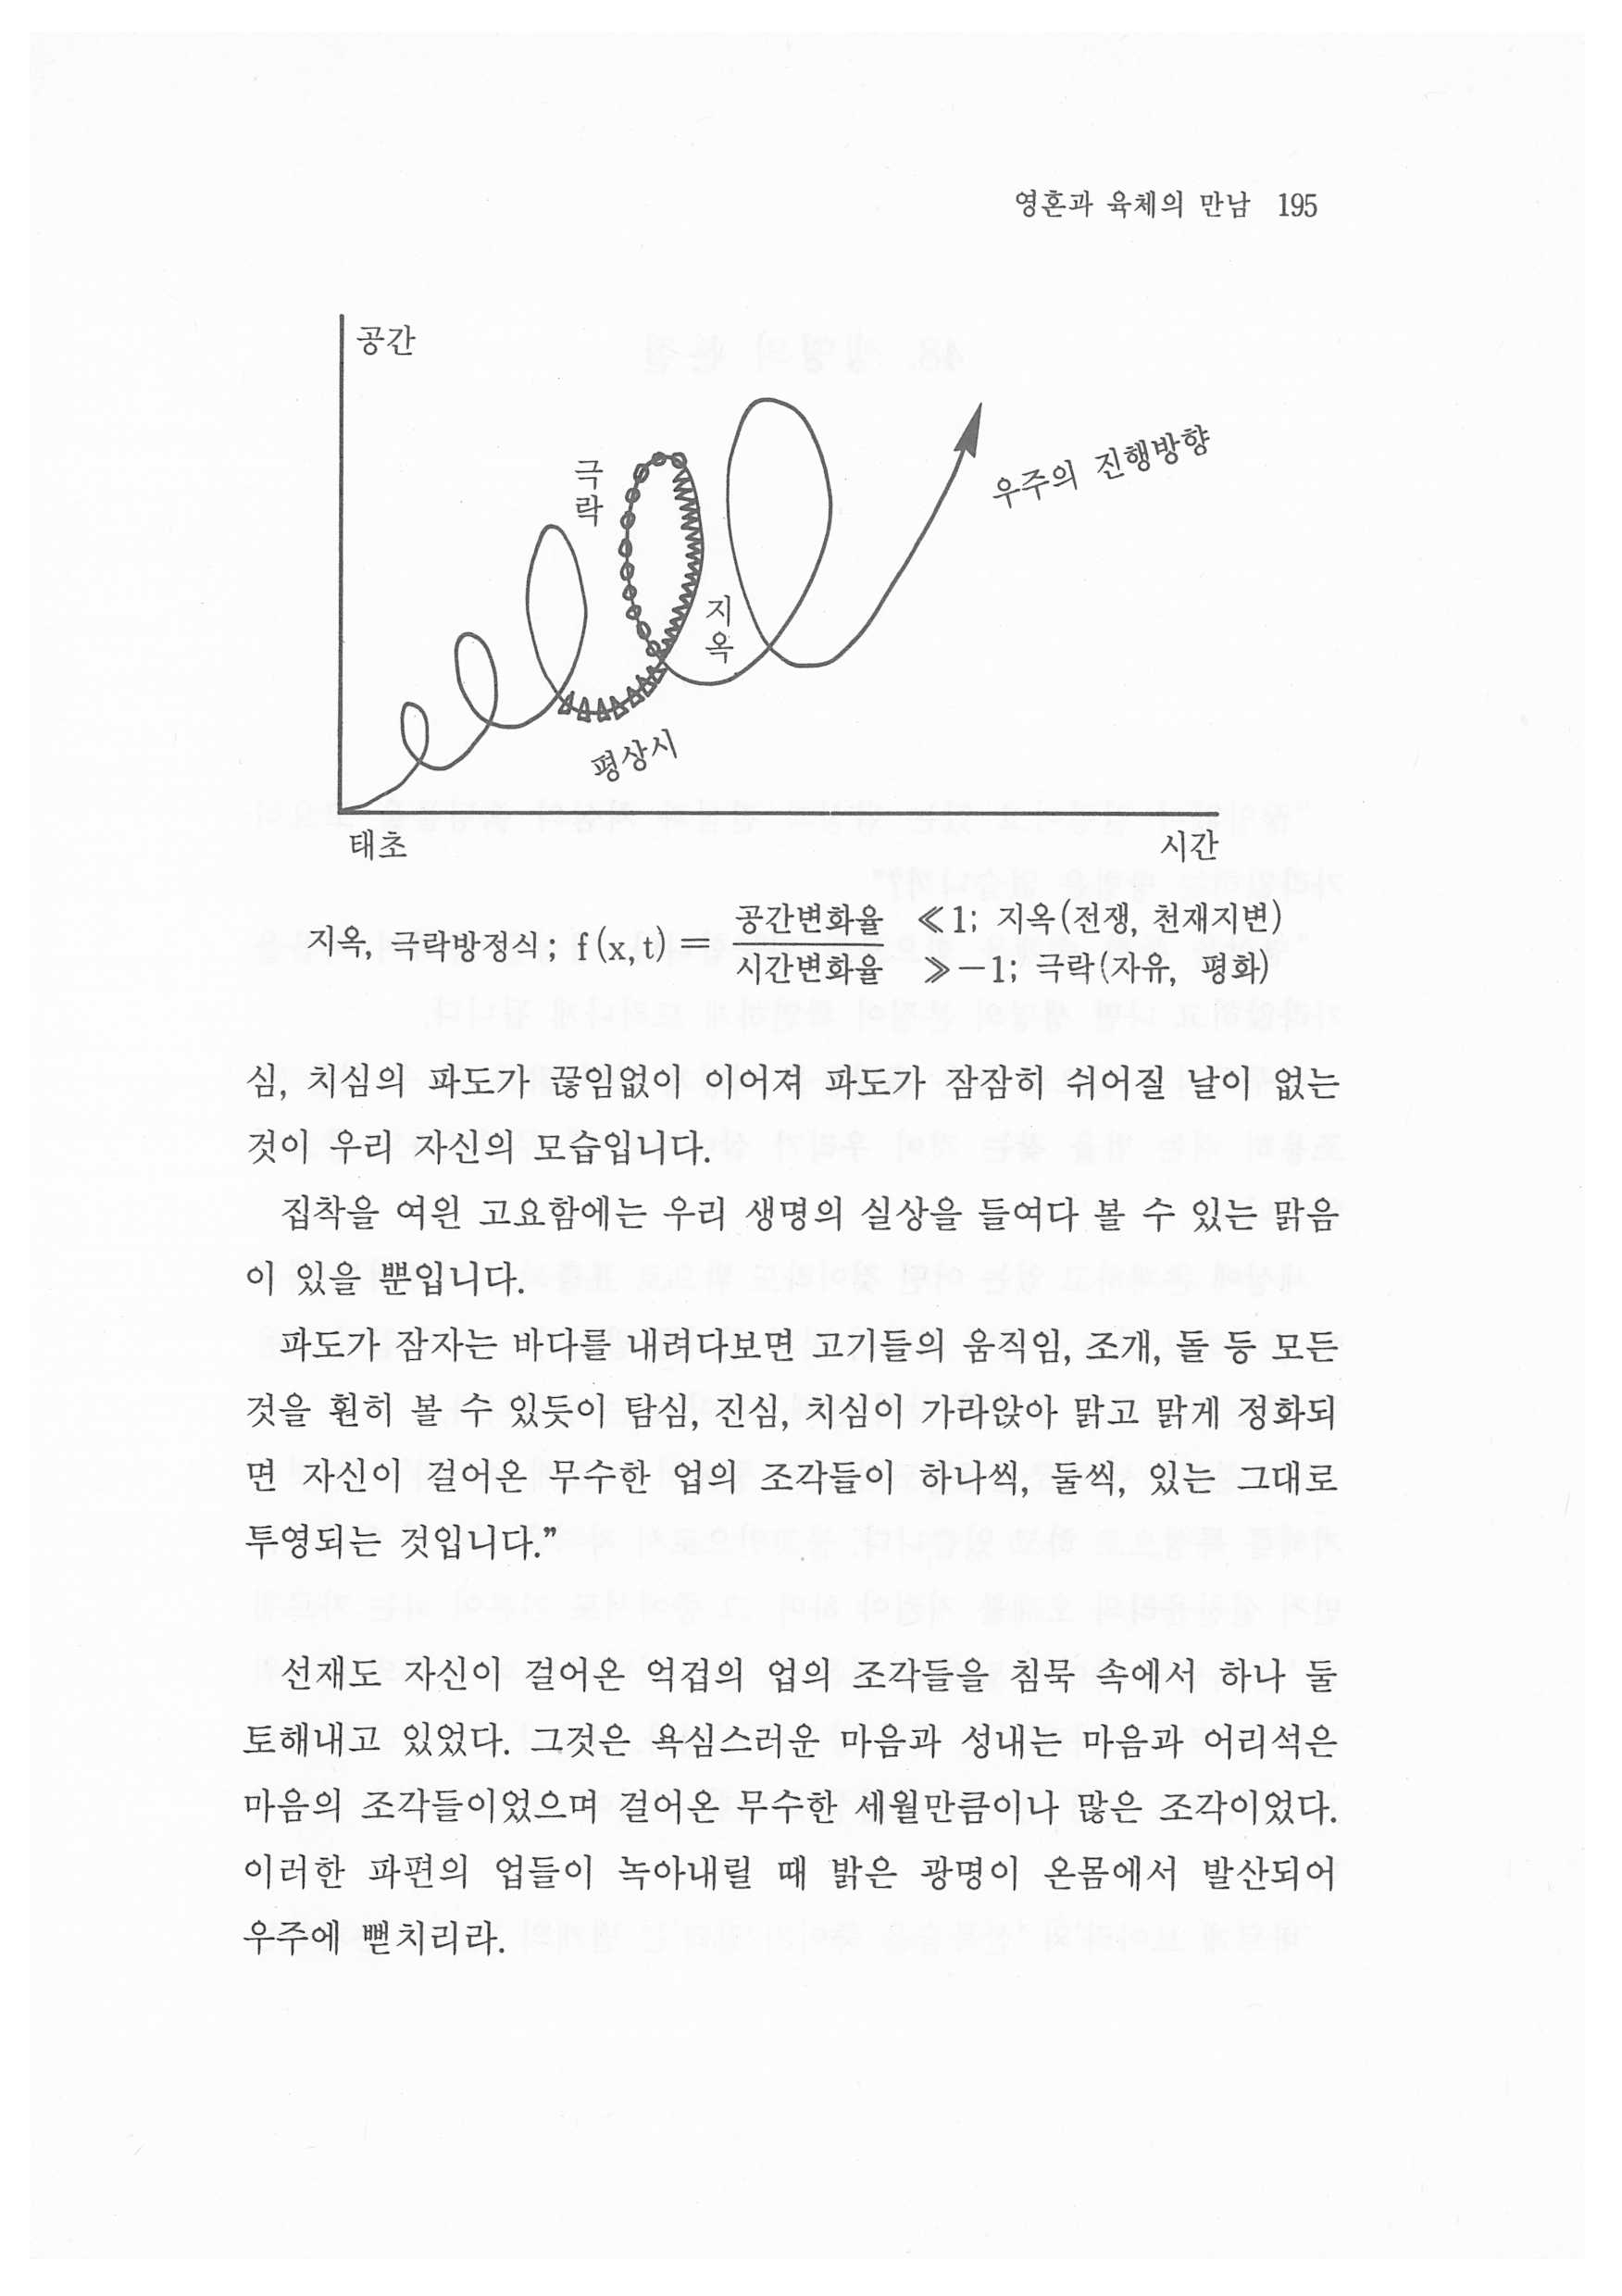 영혼과 육체의 만남 195
공간
극
락
지
옥
우주의 진행방향
평상시
태초
시간
지옥, 극락방정식; f(x,t) = 공간변화율 ≪1; 지옥(전쟁, 천재지변)
시간변화율 ≫-1; 극락(자유, 평화)
심, 치심의 파도가 끊임없이 이어져 파도가 잠잠히 쉬어질 날이 없는
것이 우리 자신의 모습입니다.
집착을 여읜 고요함에는 우리 생명의 실상을 들여다 볼 수 있는 맑음
이 있을 뿐입니다.
파도가 잠자는 바다를 내려다보면 고기들의 움직임, 조개, 돌 등 모든
것을 훤히 볼 수 있듯이 탐심, 진심, 치심이 가라앉아 맑고 맑게 정화되
면 자신이 걸어온 무수한 업의 조각들이 하나씩, 둘씩, 있는 그대로
투영되는 것입니다.”
선재도 자신이 걸어온 억겁의 업의 조각들을 침묵 속에서 하나 둘
토해내고 있었다. 그것은 욕심스러운 마음과 성내는 마음과 어리석은
마음의 조각들이었으며 걸어온 무수한 세월만큼이나 많은 조각이었다.
이러한 파편의 업들이 녹아내릴 때 밝은 광명이 온몸에서 발산되어
우주에 뻗치리라.